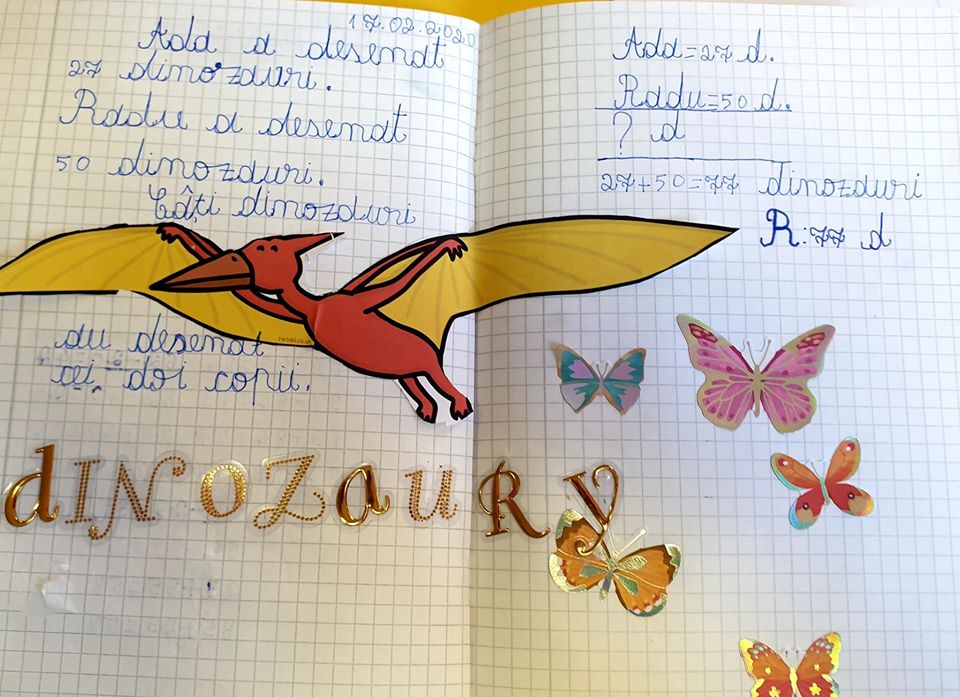 17.02.2020
Ada a desenat
27 dinozauri.
Radu a desenat
50 dinozauri.
Câți dinozauri
twinkl.co.uk
au desenat
cei doi copii.
dINOZauRy
Ada=27 d.
Radu=50 d.
? d
27+50=77 dinozauri
R:77 d